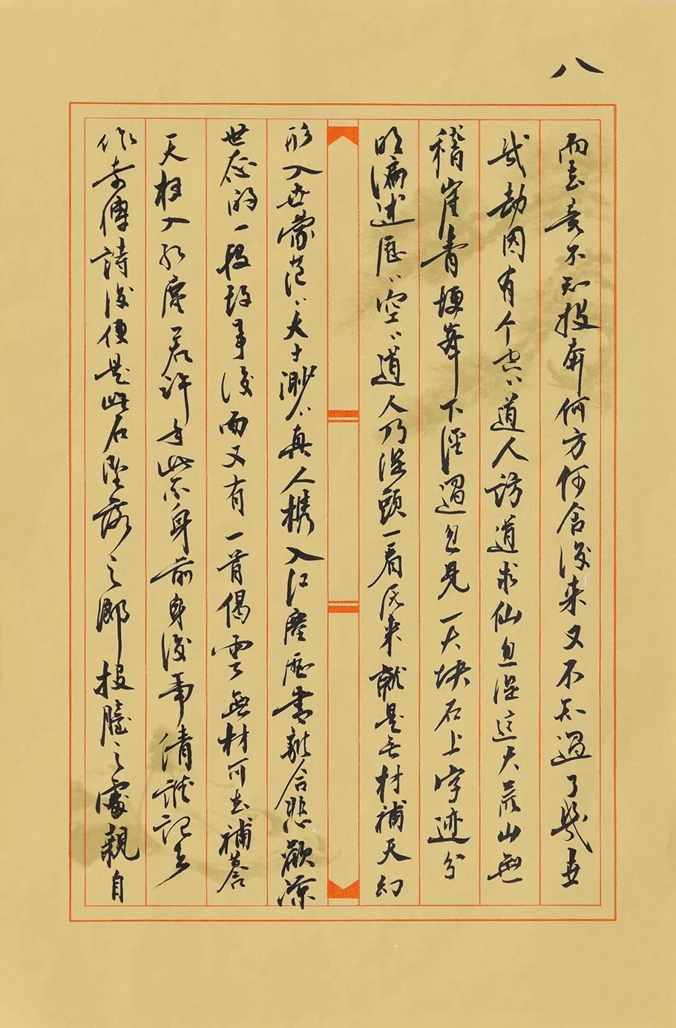 八
而去竟不知投奔何方何舍後来又不知過了幾世
幾劫因有个空〻道人訪道求仙忽從這大荒山無
稽崖青埂峯下徑過忽見一大块石上字迹分
明编述歷〻空〻道人乃從頭一看原来就是無材補天幻
形入世蒙茫〻大士渺〻真人攜入红塵歷盡離合悲歡凉
世态的一段故事後面又有一首偈云無材可去補蒼
天枉入红塵若許年此係身前身後事倩誰記去
作奇傳詩後便是此石墜落之鄉投胎之處親自